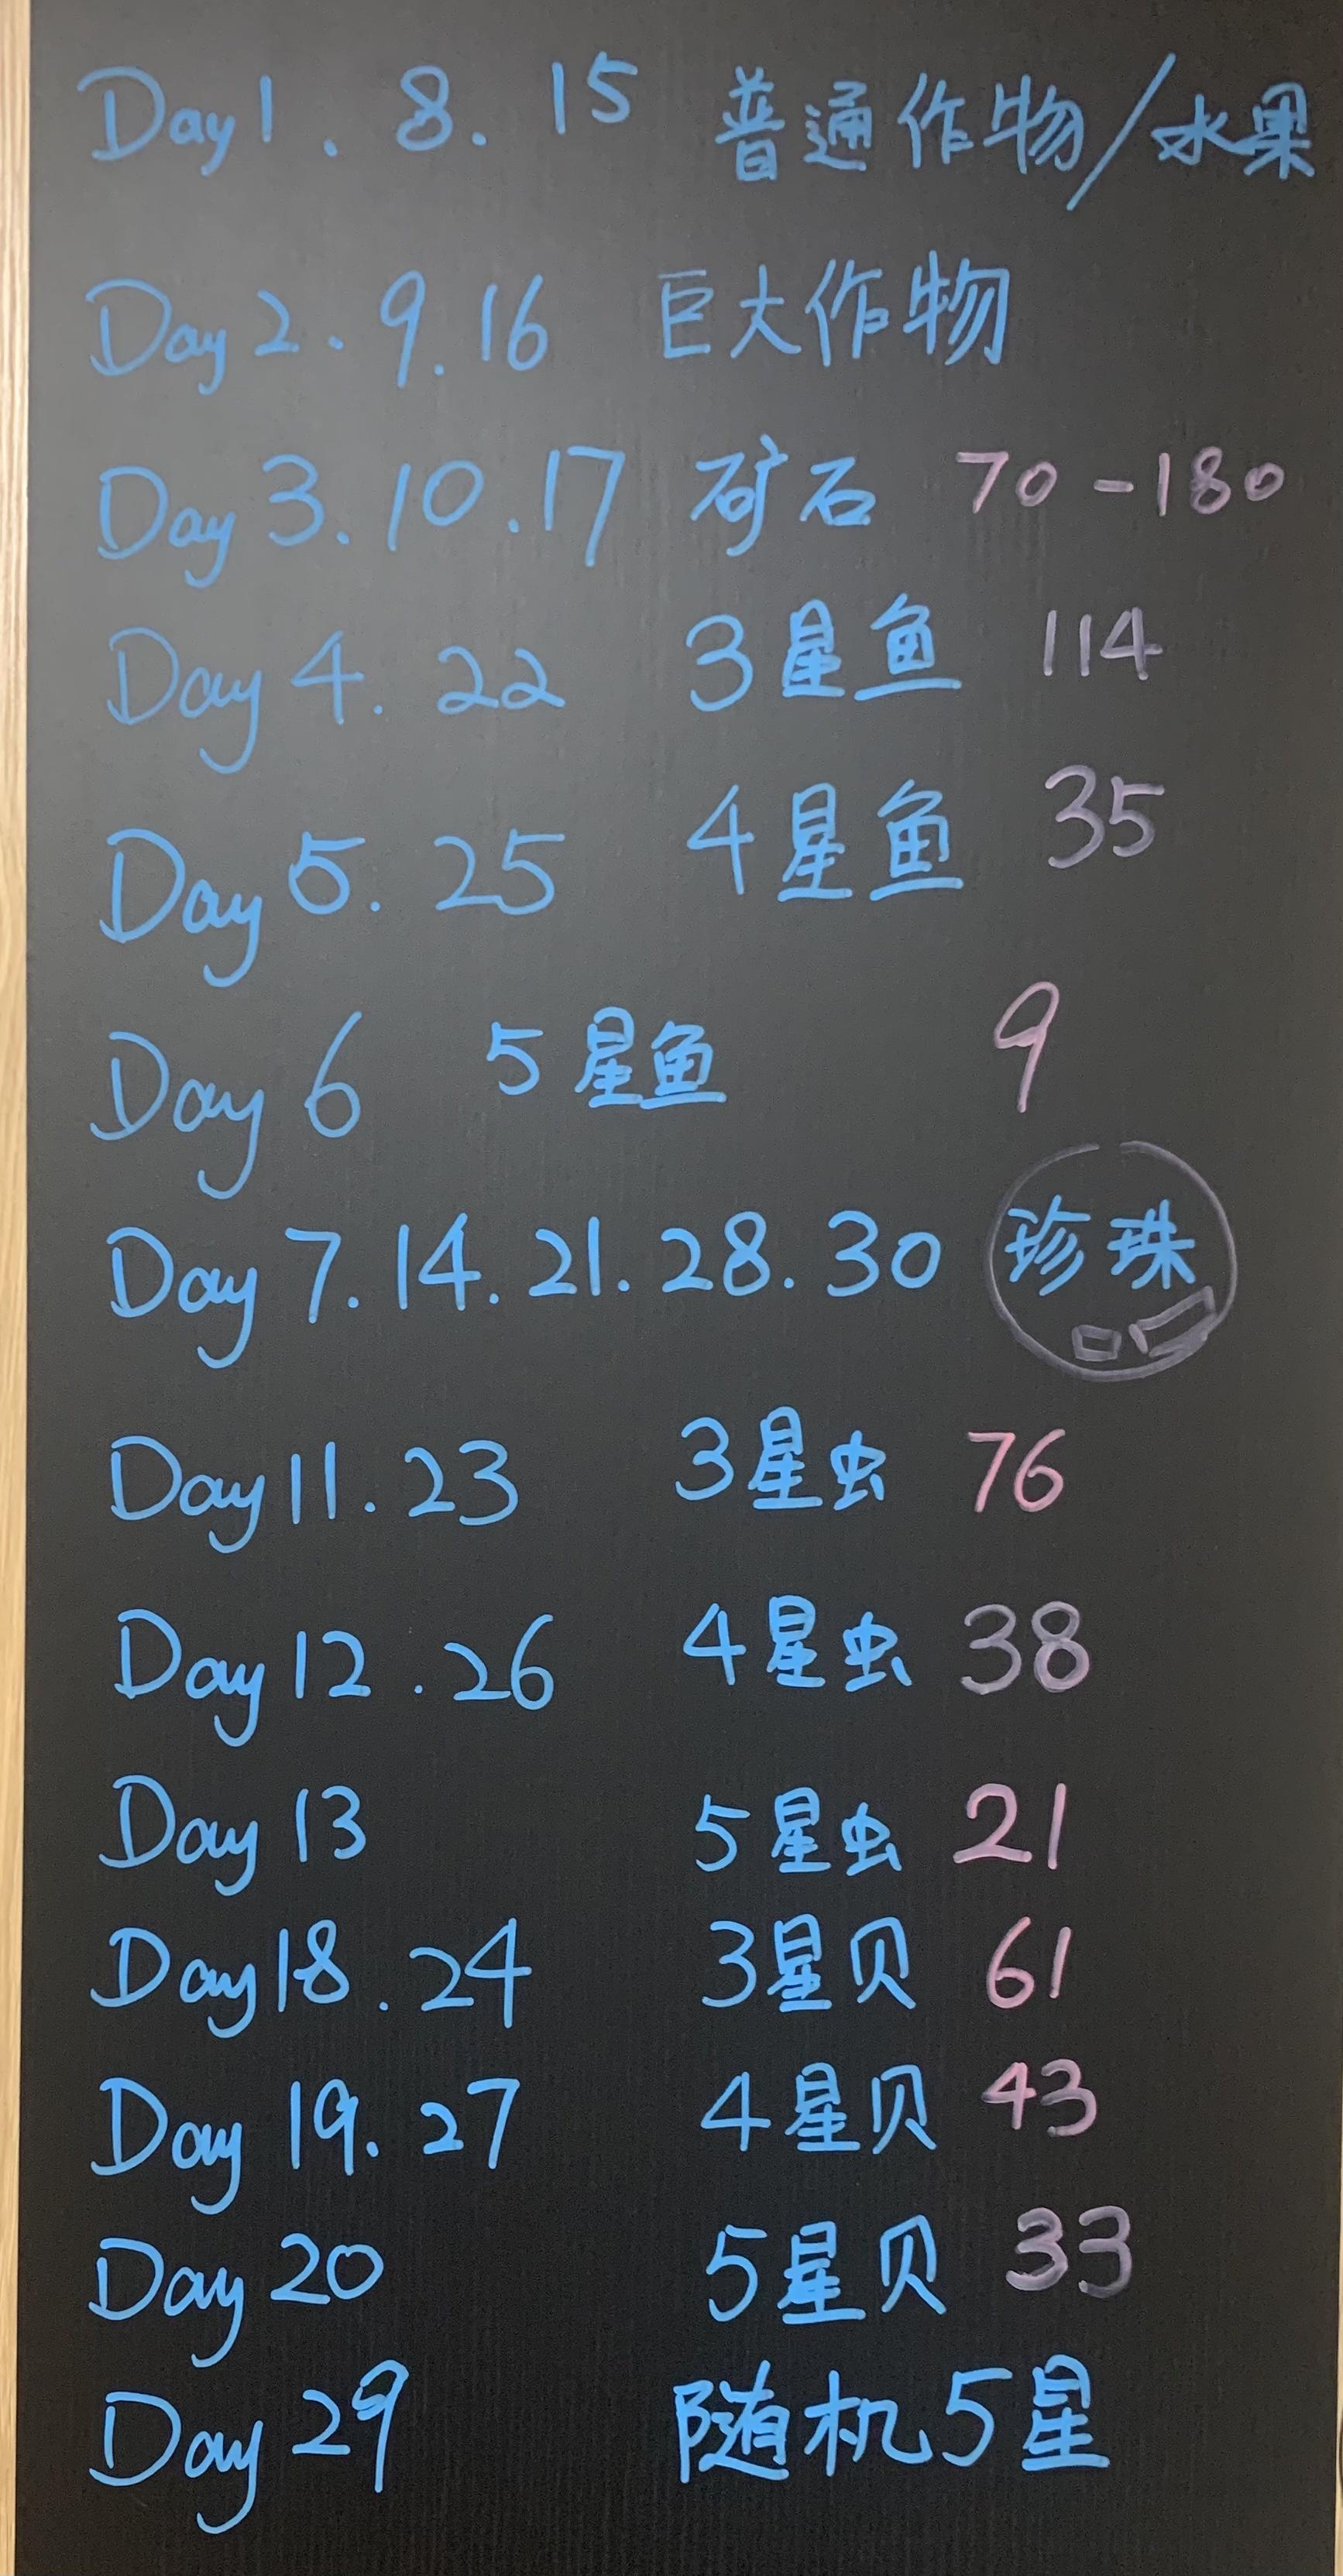 Day 1. 8. 15 普通作物/水果
Day 2. 9. 16 巨大作物
Day 3. 10. 17 矿石 70-180
Day 4. 22 3星鱼 114
Day 5. 25 4星鱼 35
Day 6 5星鱼 9
Day 7. 14. 21. 28. 30 珍珠
Day 11. 23 3星虫 76
Day 12. 26 4星虫 38
Day 13 5星虫 21
Day 18. 24 3星贝 61
Day 19. 27 4星贝 43
Day 20 5星贝 33
Day 29 随机5星